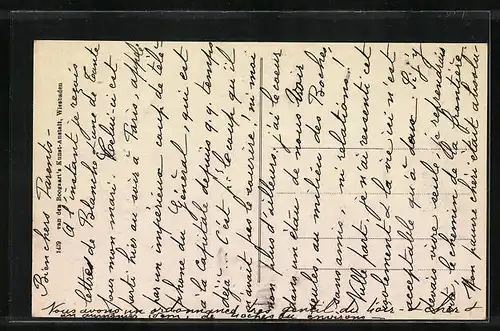 Bien chers Parents -
A l'instant je reçois
lettres de Blanche & une de tante
pour mon mari. Celui-ci est
parti hier au soir à Paris, appelé
par un impérieux coup de télé-
phone du Général, qui est
à la Capitale depuis qq temps
déjà... C'est p' le coup qu'il
n'avait pas le sourire, ni moi
non plus d'ailleurs; j'ai le cœur
dans un étau de nous voir
seules, au milieu des Boches,
sans amis, ni relations!
Nulle part, je n'ai ressenti cet
isolement & la vie ici n'est
acceptable qu'à deux. Si j'y
devais vivre seule, je reprendrais
vite le chemin de la frontière
Mon pauvre cheri était absolu
Nous avons un ordonnance très gentil du Loir-&-Cher &
des environs -
1429 van den Boogaart's Kunst-Anstalt, Wiesbaden